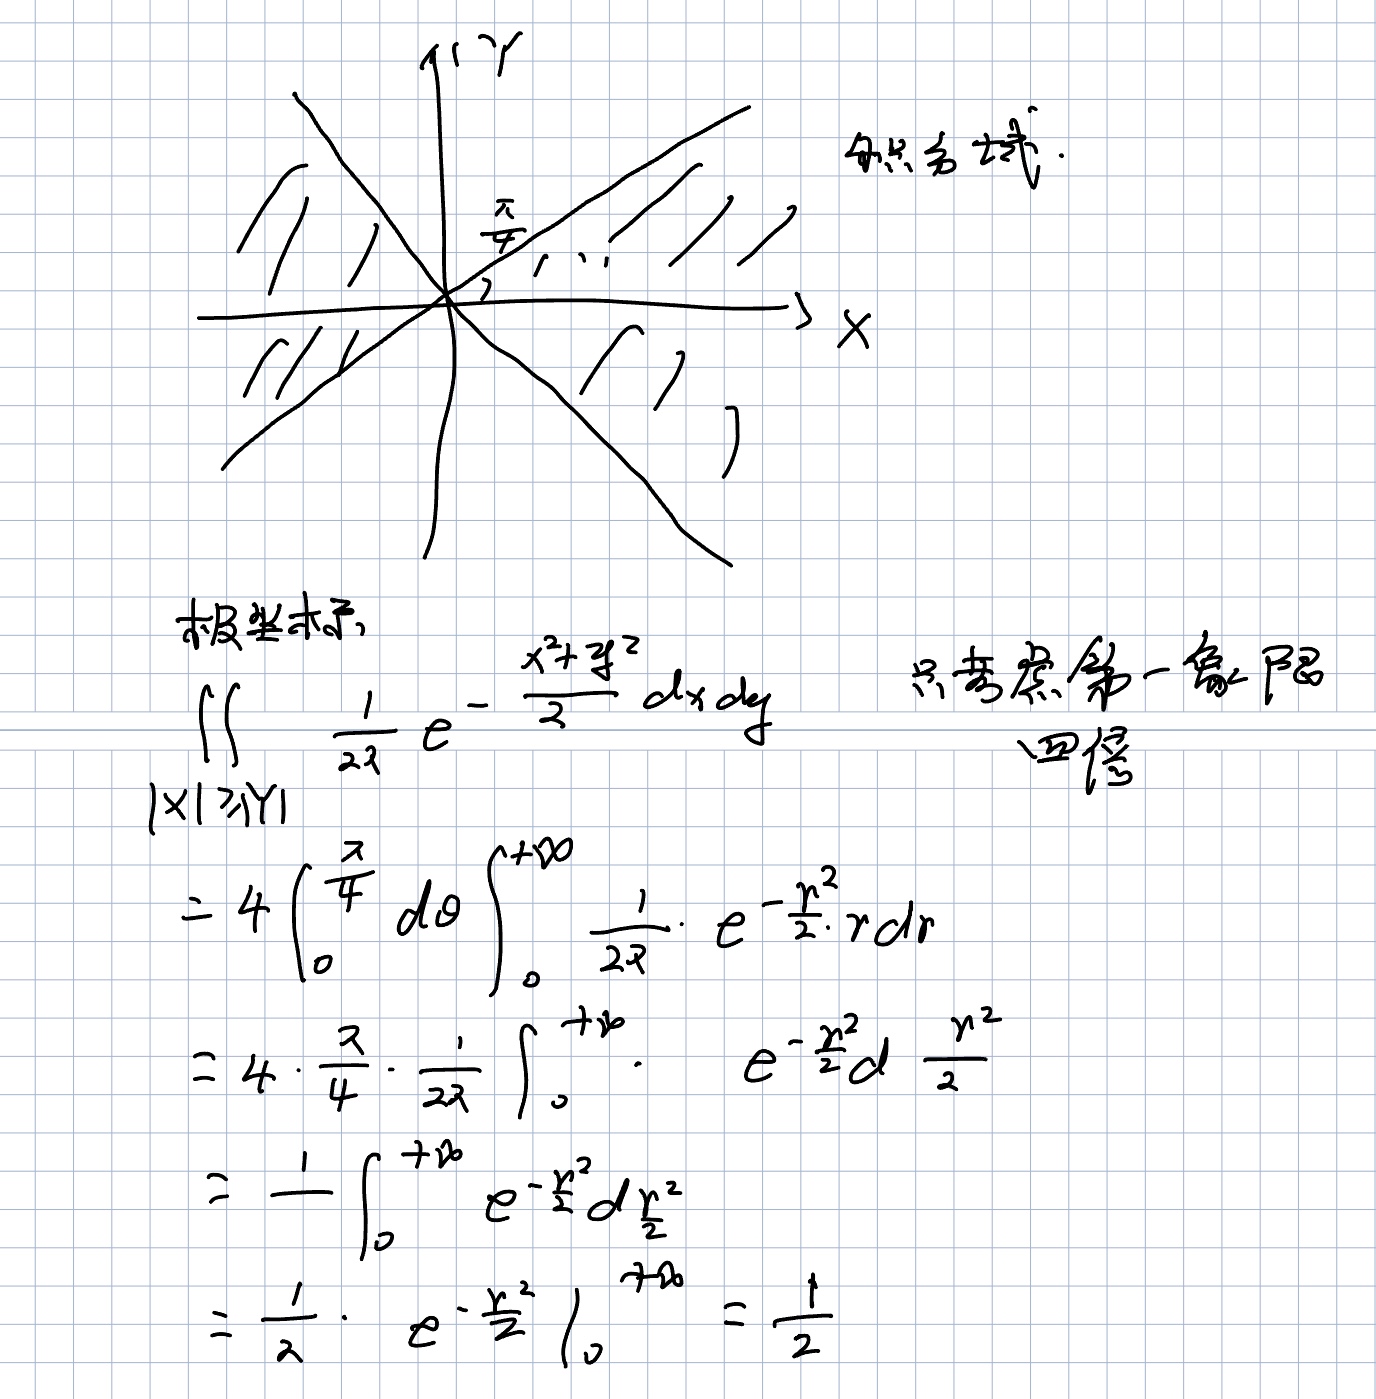 Y
积分域.
π/4
X
极坐标,
∬ 1/2π e^{-(x²+y²)/2} dxdy 只考虑第一象限
四倍
|X|≥|Y|
= 4 ∫_0^{π/4} dθ ∫_0^{+∞} 1/2π · e^{-r²/2} · r dr
= 4 · π/4 · 1/2π ∫_0^{+∞} · e^{-r²/2} d r²/2
= 1/ ∫_0^{+∞} e^{-r²/2} d r²/2
= 1/2 · e^{-r²/2} |_0^{+∞} = 1/2